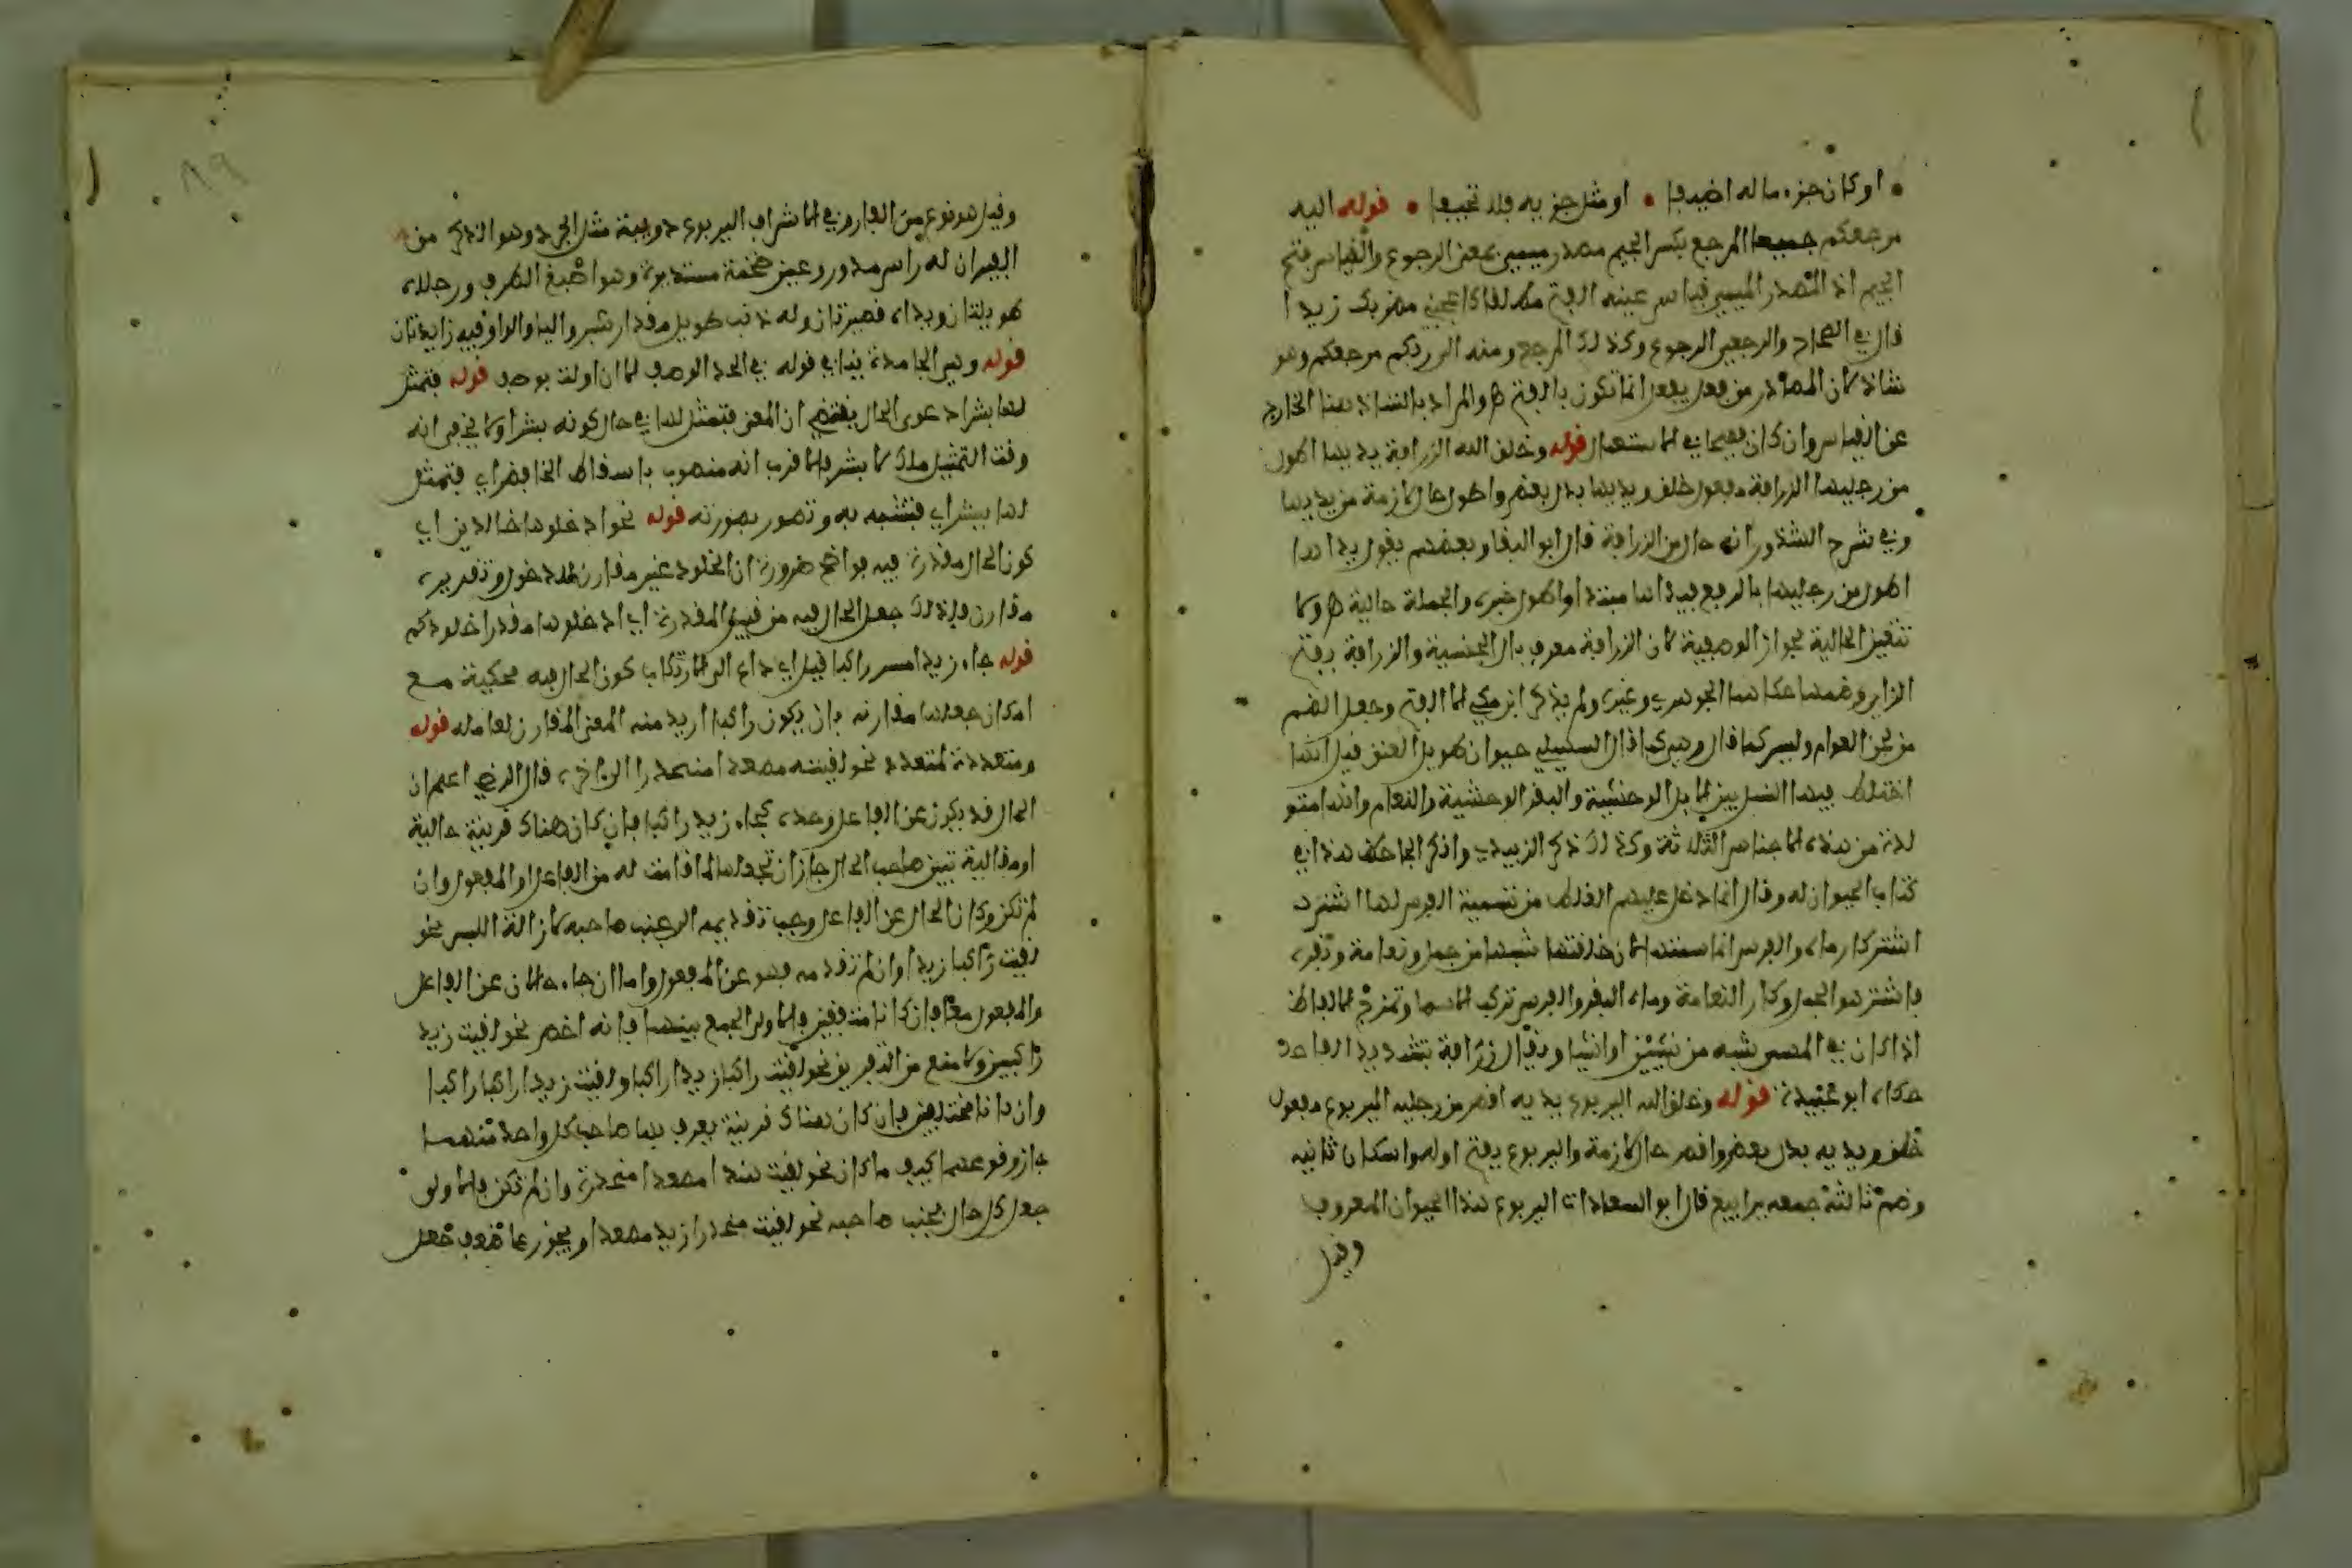 او كان جزء ما له اضيفا • او مثل جزيه فلا تحيفا • قوله اليه
مرجعكم جميعا المرجع بكسر الجيم مصدر ميمي بمعنى الرجوع والقياس فتح
الجيم اذ المصدر الميمي قياس عينه الفتح مطلقا كاعجبني مضربك زيدا
قال في الصحاح والرجعى الرجوع وكذلك المرجع ومنه الى ربكم مرجعكم وهو
شاذ لان المصادر من فعل يفعل انما تكون بالفتح ه والمراد بالشاذ هنا الخارج
عن القياس وان كان فصيحا في الاستعمال قوله وخلق الله الزرافة يديها اطول
من رجليها الزرافة مفعول خلق ويديها بدل بعض واطول حال لازمة من يديها
وفي شرح الشذور انه حال من الزرافة قال ابو البقا وبعضهم يقول يداها
اطول من رجليها بالرفع فيداها مبتدا واطول خبره والجملة حالية ه ولا
تتعين الحالية لجواز الوصفية لان الزرافة معرف بال الجنسية والزرافة بفتح
الزاي وضمها حكاهما الجوهري وغيره ولم يذكر ابن مكي الا الفتح وجعل الضم
من لحن العوام وليس كما قال وهي كما قال السهيلي حيوان طويل العنق قيل انها
اختلط فيها النسل بين الابل الوحشية والبقر الوحشية والنعام وانها متو
لدة من هذه الاجناس الثلاثة وكذلك ذكر الزبيدي وانكر الجاحظ هذا في
كتاب الحيوان له وقال انما دخل عليهم الغلط من تسمية الفرس لها اشترك
اشتركا رماه والفرس انما سمتها لان خلقتها شبها من جمل ونعامة وبقرة
فاشتر هو الجمل وكا ر النعامة وماه البقر والفرس تركب الاسما وتمزج الالفاظ
اذا كان في المسمى شبه من شيئين او اشيا ويقال زرافة بتشديد الفا حد
حكاه ابو عبيدة قوله وخلق الله اليربوع يديه اقصر من رجليه اليربوع مفعول
خلق ويديه بدل بعض واقصر حال لازمة واليربوع بفتح اوله واسكان ثانيه
وضم ثالثه جمعه يرابيع قال ابو السعادات اليربوع هذا الحيوان المعروف
وقيل
وقيل هو نوع من الفار وفي الاشراف اليربوع دويبة مثل الجرذ وهو الذكر من
الفيران له راس مدور وعين ضخمة مستديرة وهو اصبغ الطرف ورجلاه
طويلتان ويداه قصيرتان وله ذنب طويل مقدار شبر والياء والواو فيه زايدتان
قوله وهي الجامدة ينافي قوله في الحد الوصف الا ان اولت بوصف قوله فتمثل
لها بشرا دعوى الحال يقتضي ان المعنى فتمثل لها في حال كونه بشرا ولا يخفى انه
وقت التمثيل ملك لا بشر فالاقرب انه منصوب باسقاط الخافض اي فتمثل
لها ببشر اي فتشبه به وتصور بصورته قوله نحو ادخلوها خالدين اي
كون الحال مقدرة فيه واضح ضرورة ان الخلود غير مقارن للدخول وتقديره
مقارن فلذلك جعل الحال فيه من قبيل المقدرة اي ادخلوها مقدرا خلودكم
قوله جاء زيد امس راكبا قيل اي داع الى ارتكاب كون الحال فيه محكية مع
امكان جعلها مقارنة بان يكون راكبا اريد منه المعنى المقارن لعامله قوله
ومتعددة لمتعدد نحو لقيته مصعدا منحدرا الى اخره قال الرضي اعلم ان
الحال قد يكون عن الفاعل وحده كجاء زيد راكبا فان كان هناك قرينة حالية
او مقالية تبين صاحب الحال جاز ان تجعلها لما قامت له من الفاعل او المفعول وان
لم تكن وكان الحال عن الفاعل وجب تقديمه الى جنب صاحبه لازالة اللبس نحو
لقيت راكبا زيدا وان لم تقدمه فهو عن المفعول واما ان جاء حالان عن الفاعل
والمفعول معا فان كانا متفقين فالاولى الجمع بينهما فانه اخصر نحو لقيت زيدا
راكبين ولا منع من التفريق نحو لقيت راكبا زيدا راكبا ولقيت زيدا راكبا راكبا
وان كانا مختلفين فان كان هناك قرينة يعرف بها صاحب كل واحد منهما
جاز وقوعهما كيف ما كان نحو لقيت هندا مصعدا منحدرة وان لم تكن فالاولى
جعل كل حال بجنب صاحبه نحو لقيت منحدرا زيدا مصعدا ويجوز على ضعف جعل